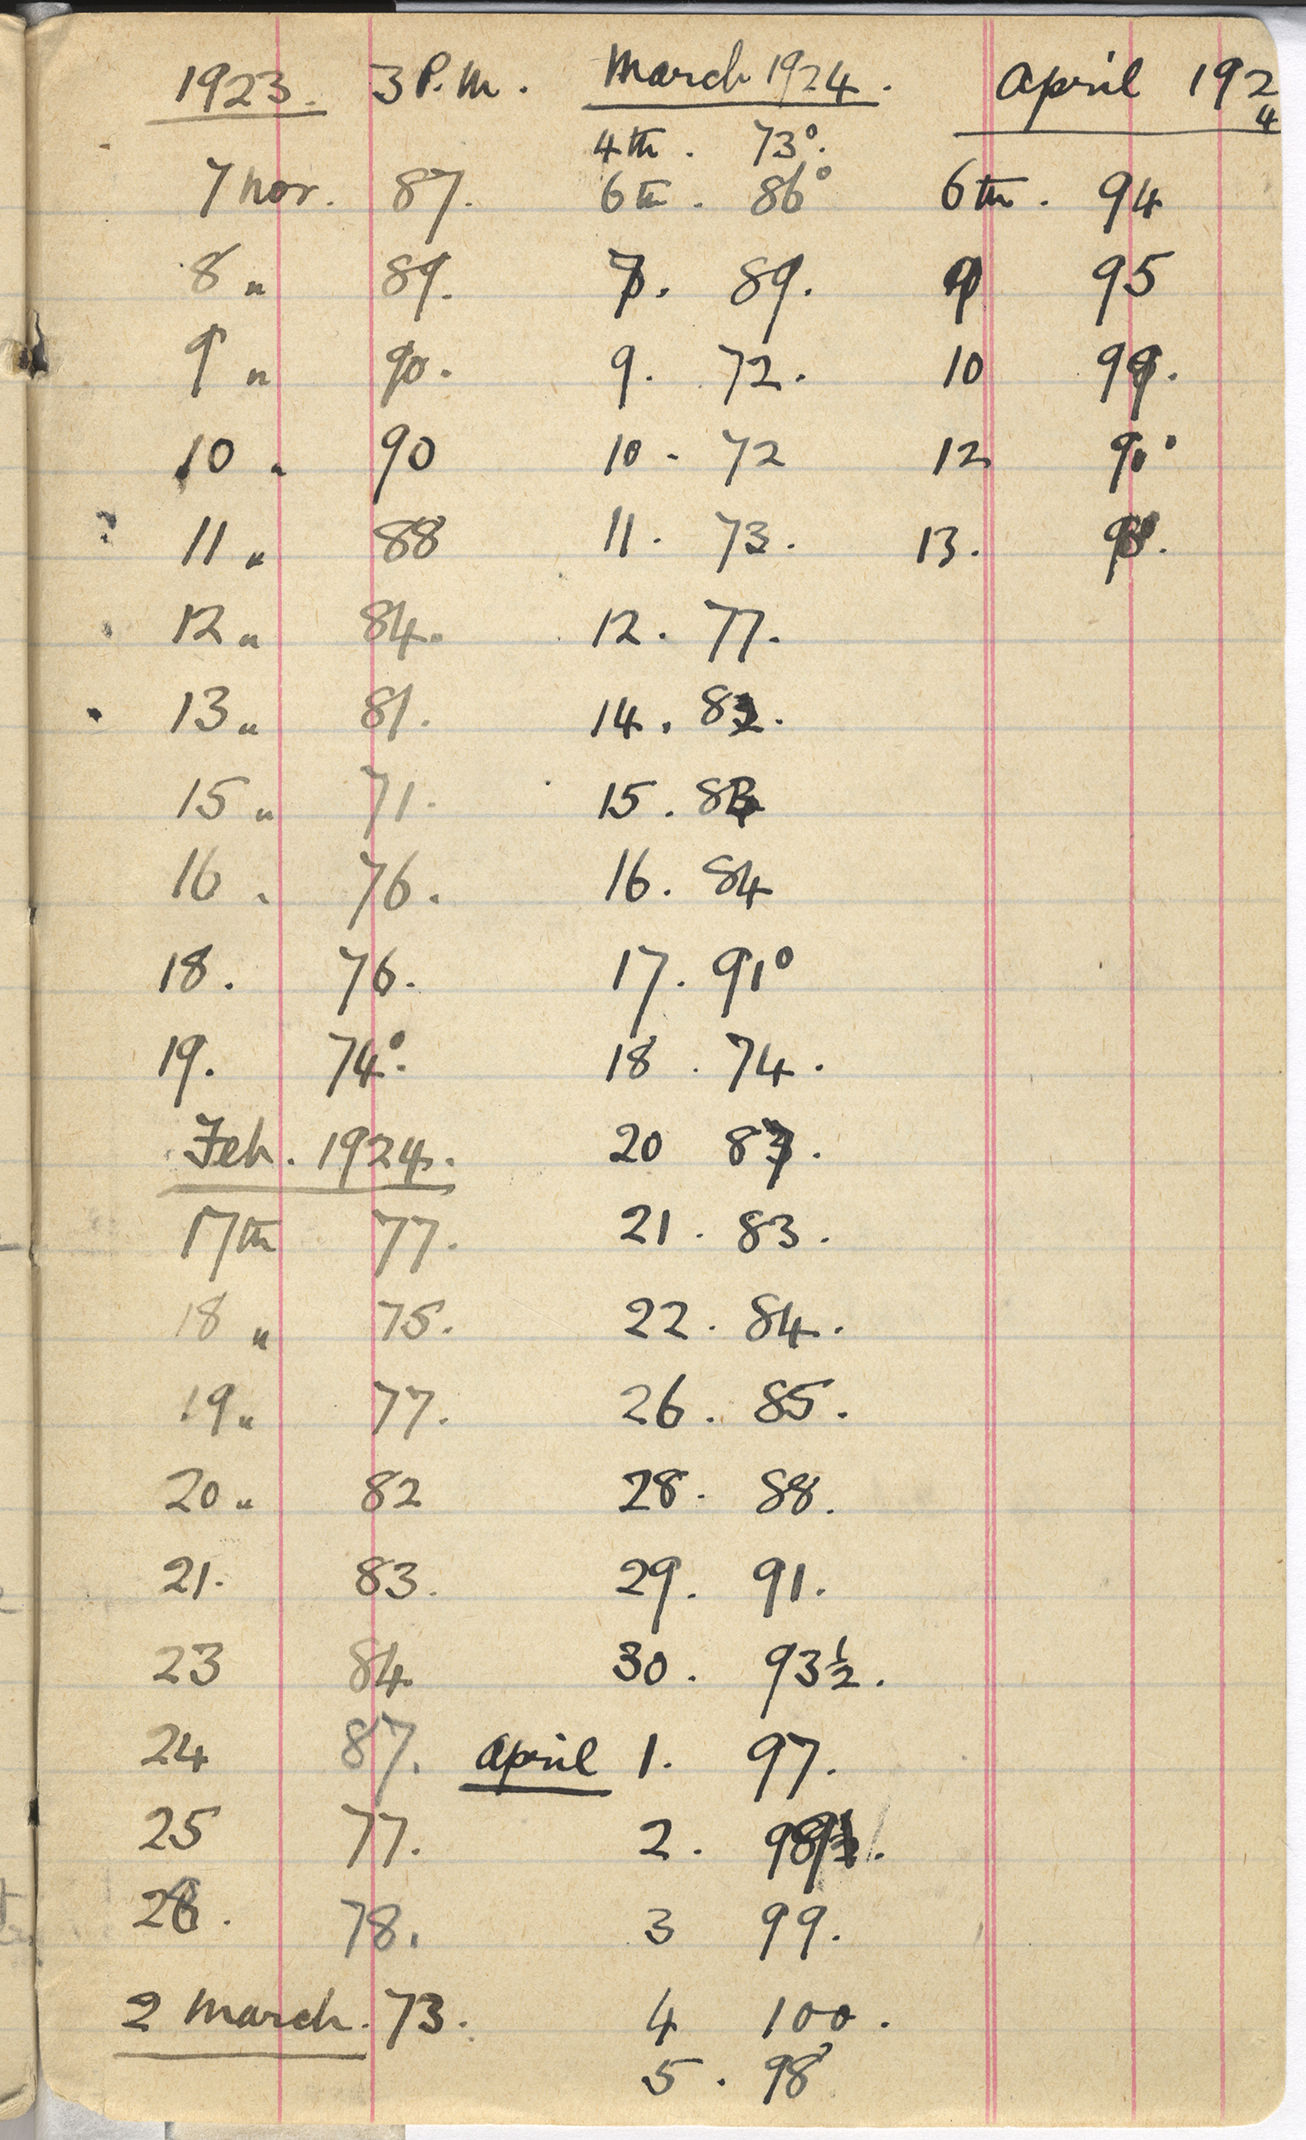 1923. 3 P.M.
7 Nov. 87.
8 " 89.
9 " 90.
10 " 90
11 " 88
12 " 84.
13 " 81.
15 " 71.
16 " 76.
18. 76.
19. 74°.
Feb. 1924.
17th 77.
18 " 75.
19 " 77.
20 " 82
21. 83.
23 84
24 87.
25 77.
78.
2 March. 73.
March 1924.
4th. 73°.
6th. 86°
7. 89.
9. 72.
10. 72
11. 73.
12. 77.
14. 82.
15.
16. 84
17. 91°
18. 74.
20
21. 83.
22. 84.
26. 85.
28. 88.
29. 91.
30. 93½.
April 1. 97.
2.
3 99.
4 100.
5. 98°
April 1924
6th. 94
9 95
10 99.
12
13.